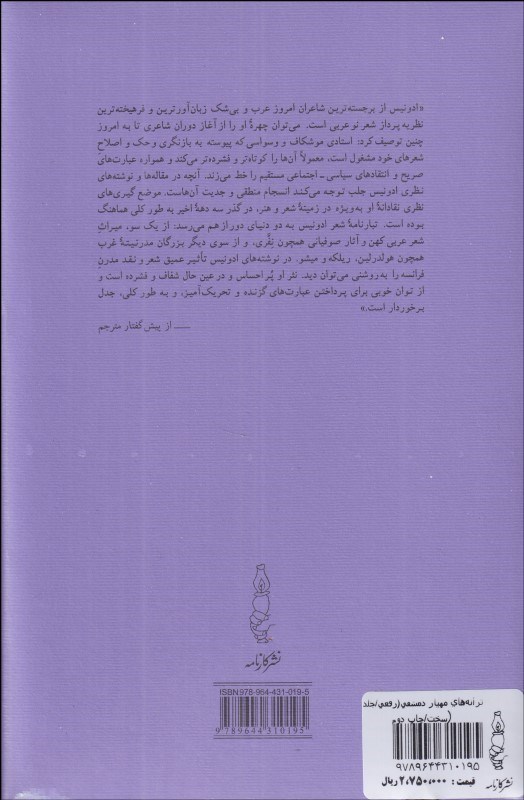 «ادونیس از برجسته‌ترین شاعران امروز عرب و بی‌شک زبان‌آورترین و فرهیخته‌ترین
نظریه پرداز شعر نو عربی است. می‌توان چهرهٔ او را از آغاز دوران شاعری تا به امروز
چنین توصیف کرد: استادی موشکاف و وسواسی که پیوسته به بازنگری و حک و اصلاح
شعرهای خود مشغول است، معمولاً آن‌ها را کوتاه‌تر و فشرده‌تر می‌کند و همواره عبارت‌های
صریح و انتقادهای سیاسی ـ اجتماعی مستقیم را خط می‌زند. آنچه در مقاله‌ها و نوشته‌های
نظری ادونیس جلب توجه می‌کند انسجام منطقی و جدیت آن‌هاست. موضع گیری‌های
نظری نقادانهٔ او به‌ویژه در زمینهٔ شعر و هنر، در گذر سه دههٔ اخیر به طور کلی هماهنگ
بوده است. تبارنامهٔ شعر ادونیس به دو دنیای دور از هم می‌رسد: از یک سو، میراثِ
شعر عربی کهن و آثار صوفیانی همچون نِفَّری، و از سوی دیگر بزرگان مدرنیتهٔ غرب
همچون هولدرلین، ریلکه و میشو. در نوشته‌های ادونیس تأثیر عمیق شعر و نقد مدرنِ
فرانسه را به‌روشنی می‌توان دید. نثر او پُر احساس و در عین حال شفاف و فشرده است و
از توان خوبی برای پرداختن عبارت‌های گزنده و تحریک‌آمیز، و به طور کلی، جدل
برخوردار است.»
ــــ از پیش‌گفتار مترجم
نشر کارنامه
ISBN 978-964-431-019-5
9789644310195
ترانه‌های مهیار دمشقی(رقعی/جلد
(سخت/چاپ دوم
۹۷۸۹۶۴۴۳۱۰۱۹۵
قیمت: ۲,۷۵۰,۰۰۰ ریال
نشر کارنامه